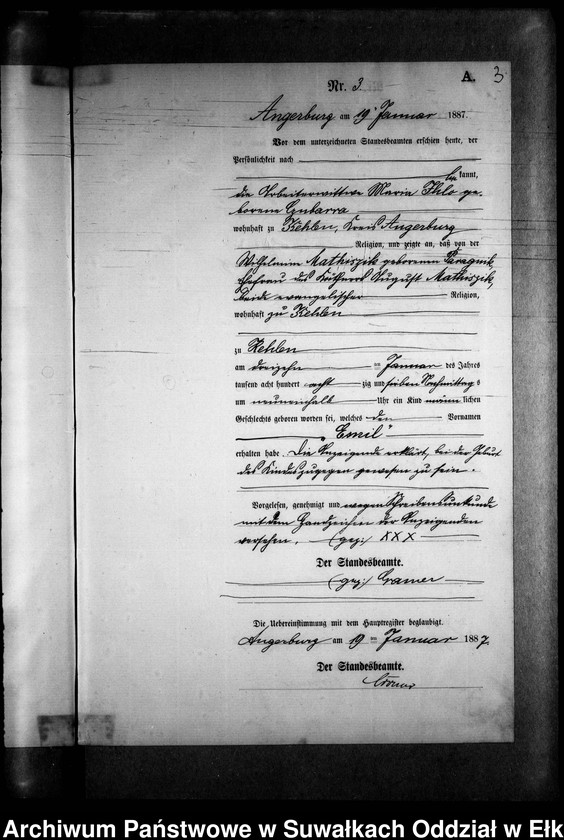 A. 3
Nr. 3.
Angerburg am 19 Januar 1887.
Vor dem unterzeichneten Standesbeamten erschien heute, der
Persönlichkeit nach
be kannt,
die Arbeiterwittwe Maria Ihlo ge-
borene Gubarra
wohnhaft zu Kehlen, Kreis Angerburg
Religion, und zeigte an, daß von der
Wilhelmine Mathiszik geborenen
Ehefrau des August Mathiszik,
beide evangelischer Religion,
wohnhaft zu Kehlen
zu Kehlen
am dreizehn ten Januar des Jahres
tausend acht hundert acht zig und sieben Nachmittags
um neuneinhalb Uhr ein Kind männ lichen
Geschlechts geboren worden sei, welches den Vornamen
"Emil"
erhalten habe. Die Anzeigende erklärt, bei der Geburt
des Kindes zugegen gewesen zu sein.
Vorgelesen, genehmigt und wegen Schreibensunkunde
mit dem Handzeichen der Anzeigenden
versehen. (gez:) XXX
Der Standesbeamte.
(gez:) Cramer
Die Uebereinstimmung mit dem Hauptregister beglaubigt.
Angerburg am 19 ten Januar 1887.
Der Standesbeamte.
Cramer
Archiwum Państwowe w Suwałkach Oddział w Ełk